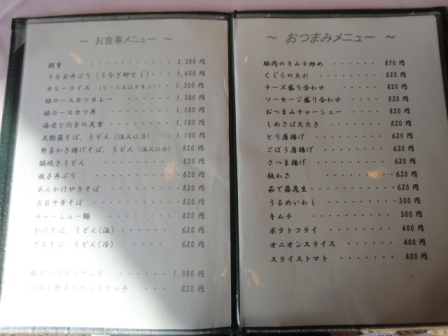 ～ お食事メニュー ～
朝食 ・・・・・ 3,300円
うな玉丼ぶり（うなぎ卵とじ）・ 1,600円
カレーライス（ビーフ又はチキン）・ 1,300円
豚ロースカツカレー ・・・・・ 1,300円
豚ロースカツ丼 ・・・・・ 1,100円
海老と穴子の天重 ・・・・・ 1,100円
天麩羅そば、うどん（温又は冷） 1,100円
野菜かき揚げそば、うどん（温又は冷） 820円
鍋焼きうどん ・・・・・ 820円
親子丼ぶり ・・・・・ 820円
あんかけやきそば ・・・・・ 820円
五目中華そば ・・・・・ 820円
チャーシュー麺 ・・・・・ 820円
かけそば、うどん（温） ・・・・・ 620円
ざるそば、うどん（冷） ・・・・・ 620円
豚ロースカツサンド ・・・・・ 1,080円
サンドイッチ ・・・・・ 820円
～ おつまみメニュー ～
豚肉のキムチ炒め ・・・・・ 870円
くじらのたれ ・・・・・ 820円
チーズ盛り合わせ ・・・・・ 820円
ソーセージ盛り合わせ ・・・・・ 820円
おつまみチャーシュー ・・・・・ 820円
しめさばたたき ・・・・・ 620円
とり唐揚げ ・・・・・ 620円
ごぼう唐揚げ ・・・・・ 620円
さつま揚げ ・・・・・ 620円
板わさ ・・・・・ 620円
茹で落花生 ・・・・・ 620円
うるめいわし ・・・・・ 500円
キムチ ・・・・・ 500円
ポテトフライ ・・・・・ 400円
オニオンスライス ・・・・・ 400円
スライストマト ・・・・・ 400円